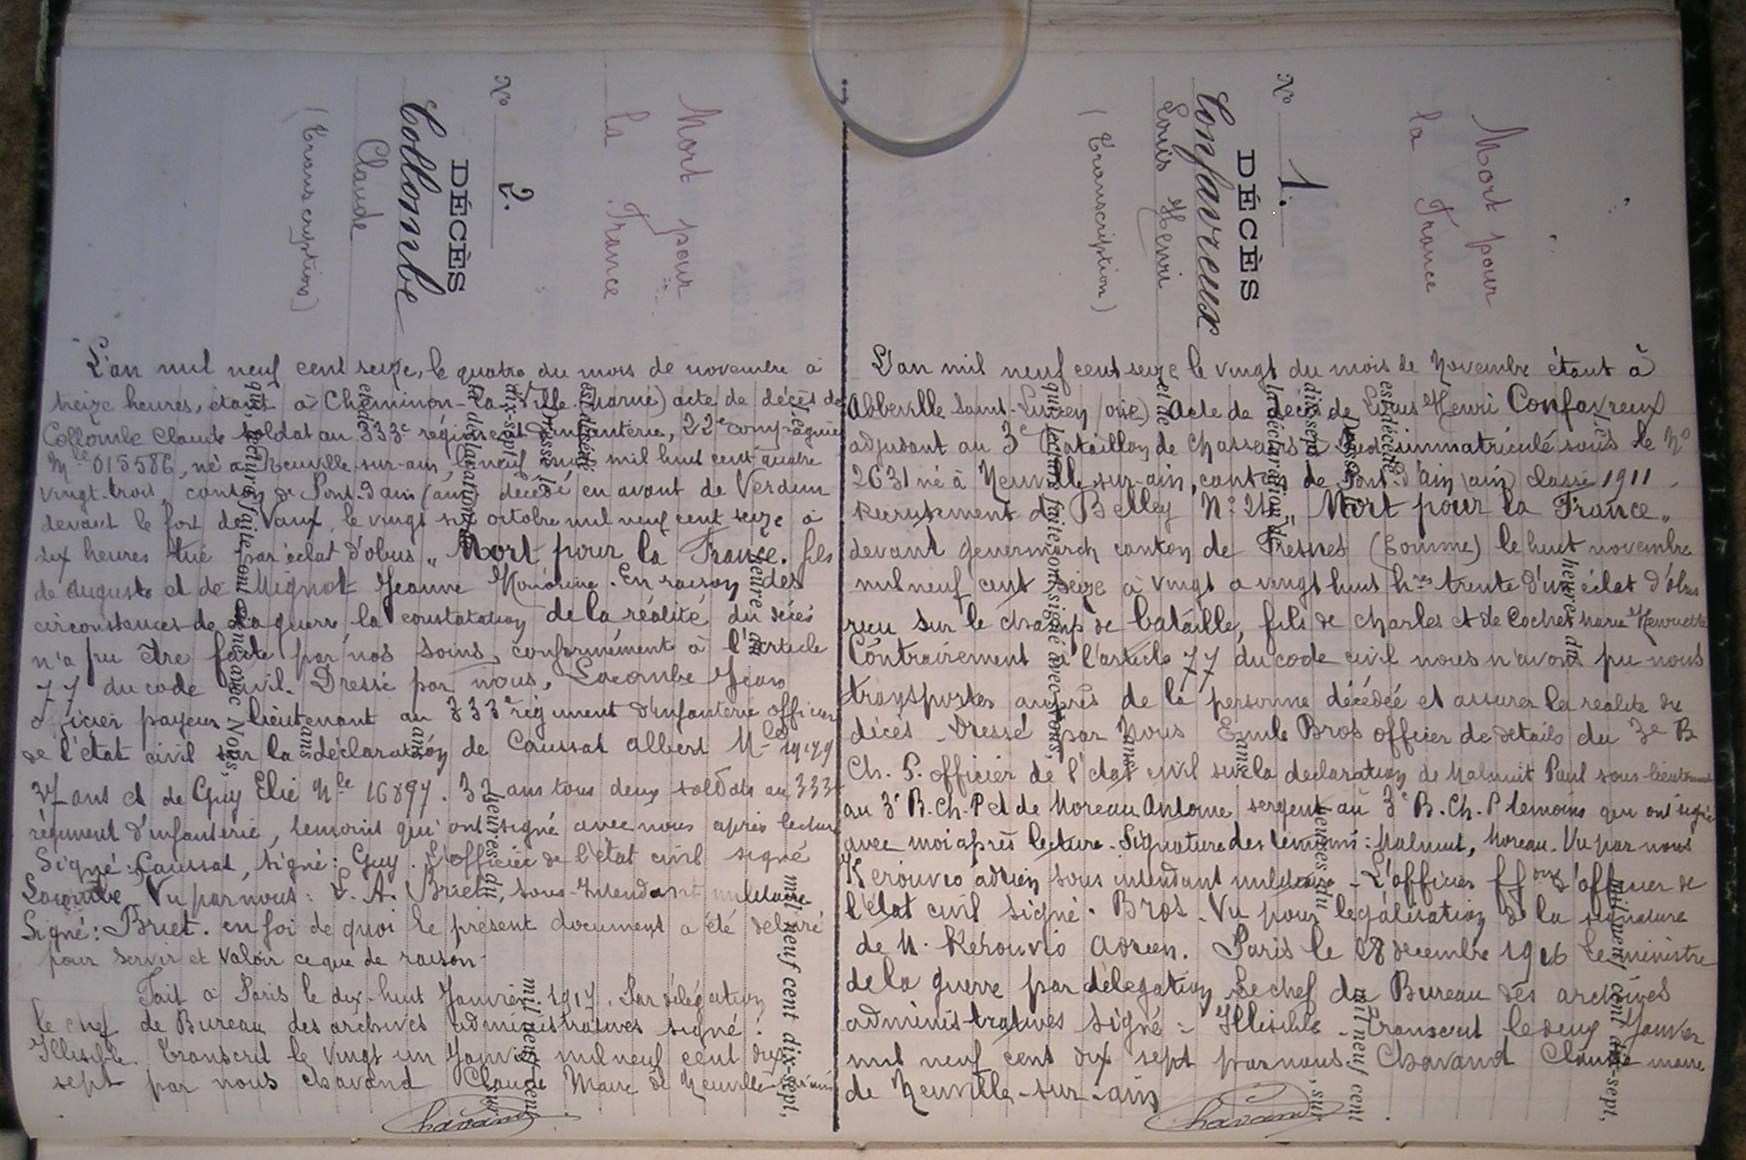 Mort pour
la France
N° 1.
DÉCÈS
Confavreux
Louis Henri
(Transcription)
L'an mil neuf cent seize le vingt du mois de Novembre étant à
Abbeville Saint-Lucien (oise) Acte de décès de Louis Henri Confavreux
adjudant au 3e Bataillon de Chasseurs à pied immatriculé sous le N°
2631 né à Neuville-sur-ain, canton de Pont-d'ain (ain) classe 1911
recrutement de Belley N° 21 "Mort pour la France"
devant genermarch canton de Fresnes (Somme) le huit novembre
mil neuf cent seize à vingt a vingt huit hres trente d'un éclat d'obus
reçu sur le champ de bataille, fils de Charles et de Cochet Marie Henriette
Contrairement à l'article 77 du code civil nous n'avons pu nous
transporter auprès de la personne décédée et assurer la réalité du
décès - Dressé par Nous Emile Bros officier de détails du 3e B
Ch. P. officier de l'état civil sur la déclaration de Malnuit Paul sous-lieutenant
au 3e B. Ch. P et de Moreau Antoine sergent au 3e B. Ch. P témoins qui ont signé
avec moi après lecture. Signature des témoins : Malnuit, Moreau. Vu par nous
Kerouvio adrien sous intendant militaire - L'officier ff d'officier de
l'état civil signé. Bros. Vu pour légalisation de la signature
de M. Kérouvio Adrien. Paris le 28 décembre 1916 Le ministre
de la guerre par délégation Le chef du Bureau des archives
administratives signé : Illisible - Transcrit le deux Janvier
mil neuf cent dix sept par nous Chavand Claude maire
de Neuville-sur-ain
Chavand
Mort pour
la France
N° 2.
DÉCÈS
Collombe
Claude
(Transcription)
L'an mil neuf cent seize, le quatre du mois de novembre à
treize heures, étant à Cheminon-la-Ville (Marne) acte de décès de
Collombe Claude soldat au 333e régiment d'infanterie, 22e compagnie
Mle 015586, né à Neuville-sur-ain, le neuf mil huit cent quatre
vingt-trois, canton de Pont-d'ain (ain) décédé en avant de Verdun
devant le fort de Vaux, le vingt six octobre mil neuf cent seize à
six heures tué par éclat d'obus "Mort pour la France. fils
de Auguste et de Mignot Jeanne Honorine. En raison des
circonstances de la guerre la constatation de la réalité du décès
n'a pu être faite par nos soins, conformément à l'article
77 du code civil. Dressé par nous, Lacombe Jean
officier payeur lieutenant au 333e régiment d'infanterie officier
de l'état civil sur la déclaration de Caussat Albert Mle 19179
37 ans et de Guy Elie Mle 16897. 32 ans tous deux soldats au 333e
régiment d'infanterie, témoins qui ont signé avec nous après lecture
Signé : Caussat, signé : Guy. L'officier de l'état civil signé
Lacombe Vu par nous : L. A. Briet, sous-Intendant militaire
Signé : Briet. en foi de quoi le présent document a été délivré
pour servir et valoir ce que de raison.
Fait à Paris le dix-huit Janvier 1917. Par délégation
le chef de Bureau des archives administratives signé :
Illisible. Transcrit le vingt un Janvier mil neuf cent dix
sept par nous Chavand Claude Maire de Neuville-sur-ain
Chavand